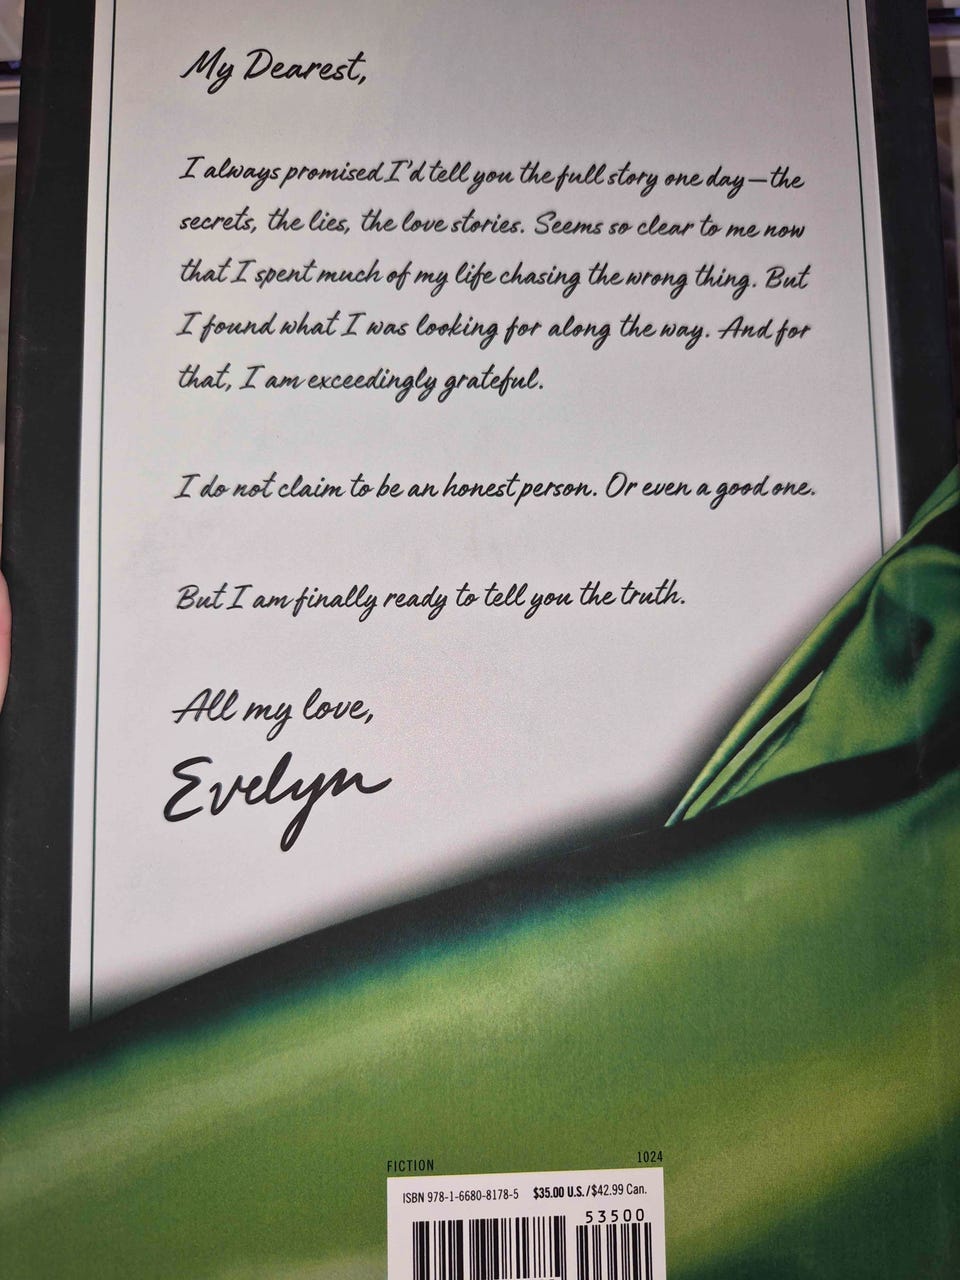 My Dearest,
I always promised I'd tell you the full story one day—the
secrets, the lies, the love stories. Seems so clear to me now
that I spent much of my life chasing the wrong thing. But
I found what I was looking for along the way. And for
that, I am exceedingly grateful.
I do not claim to be an honest person. Or even a good one.
But I am finally ready to tell you the truth.
All my love,
Evelyn
FICTION 1024
ISBN 978-1-6680-8178-5 $35.00 U.S./$42.99 Can.
53500